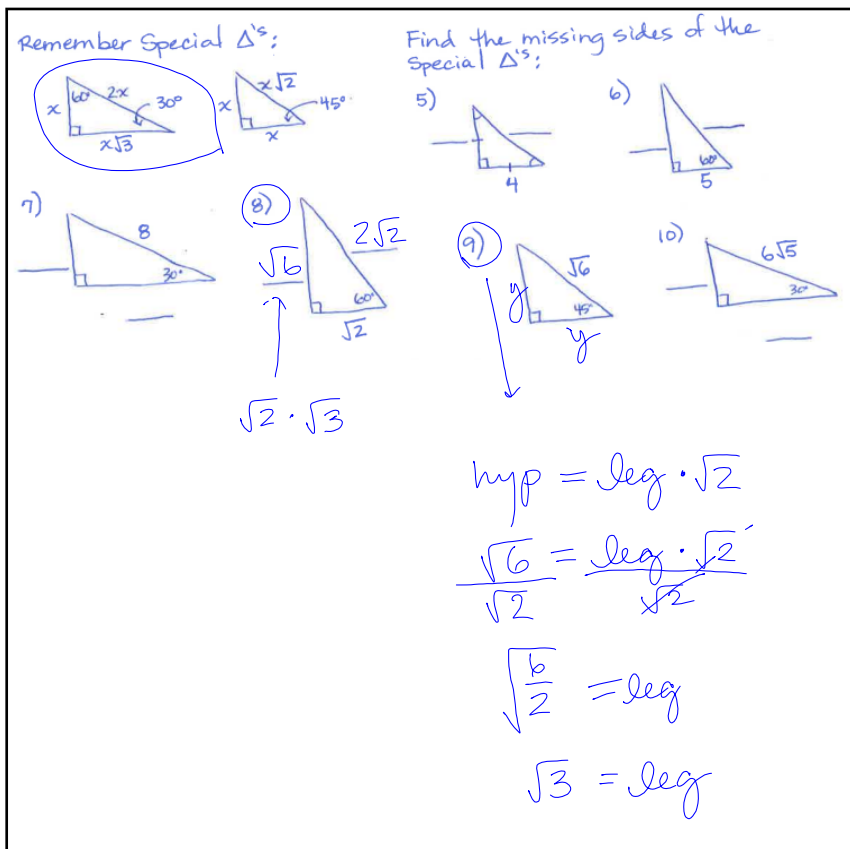 Remember Special Δ's:
x 60° 2x 30°
x√3
x x√2 45°
x
Find the missing sides of the
Special Δ's:
5)
4
6)
60°
5
7)
8
30°
8)
√6 2√2
60°
√2
√2 · √3
9)
y √6
45°
y
10)
6√5
30°
hyp = leg · √2
√6 = leg · √2
√2 √2
√6/2 = leg
√3 = leg